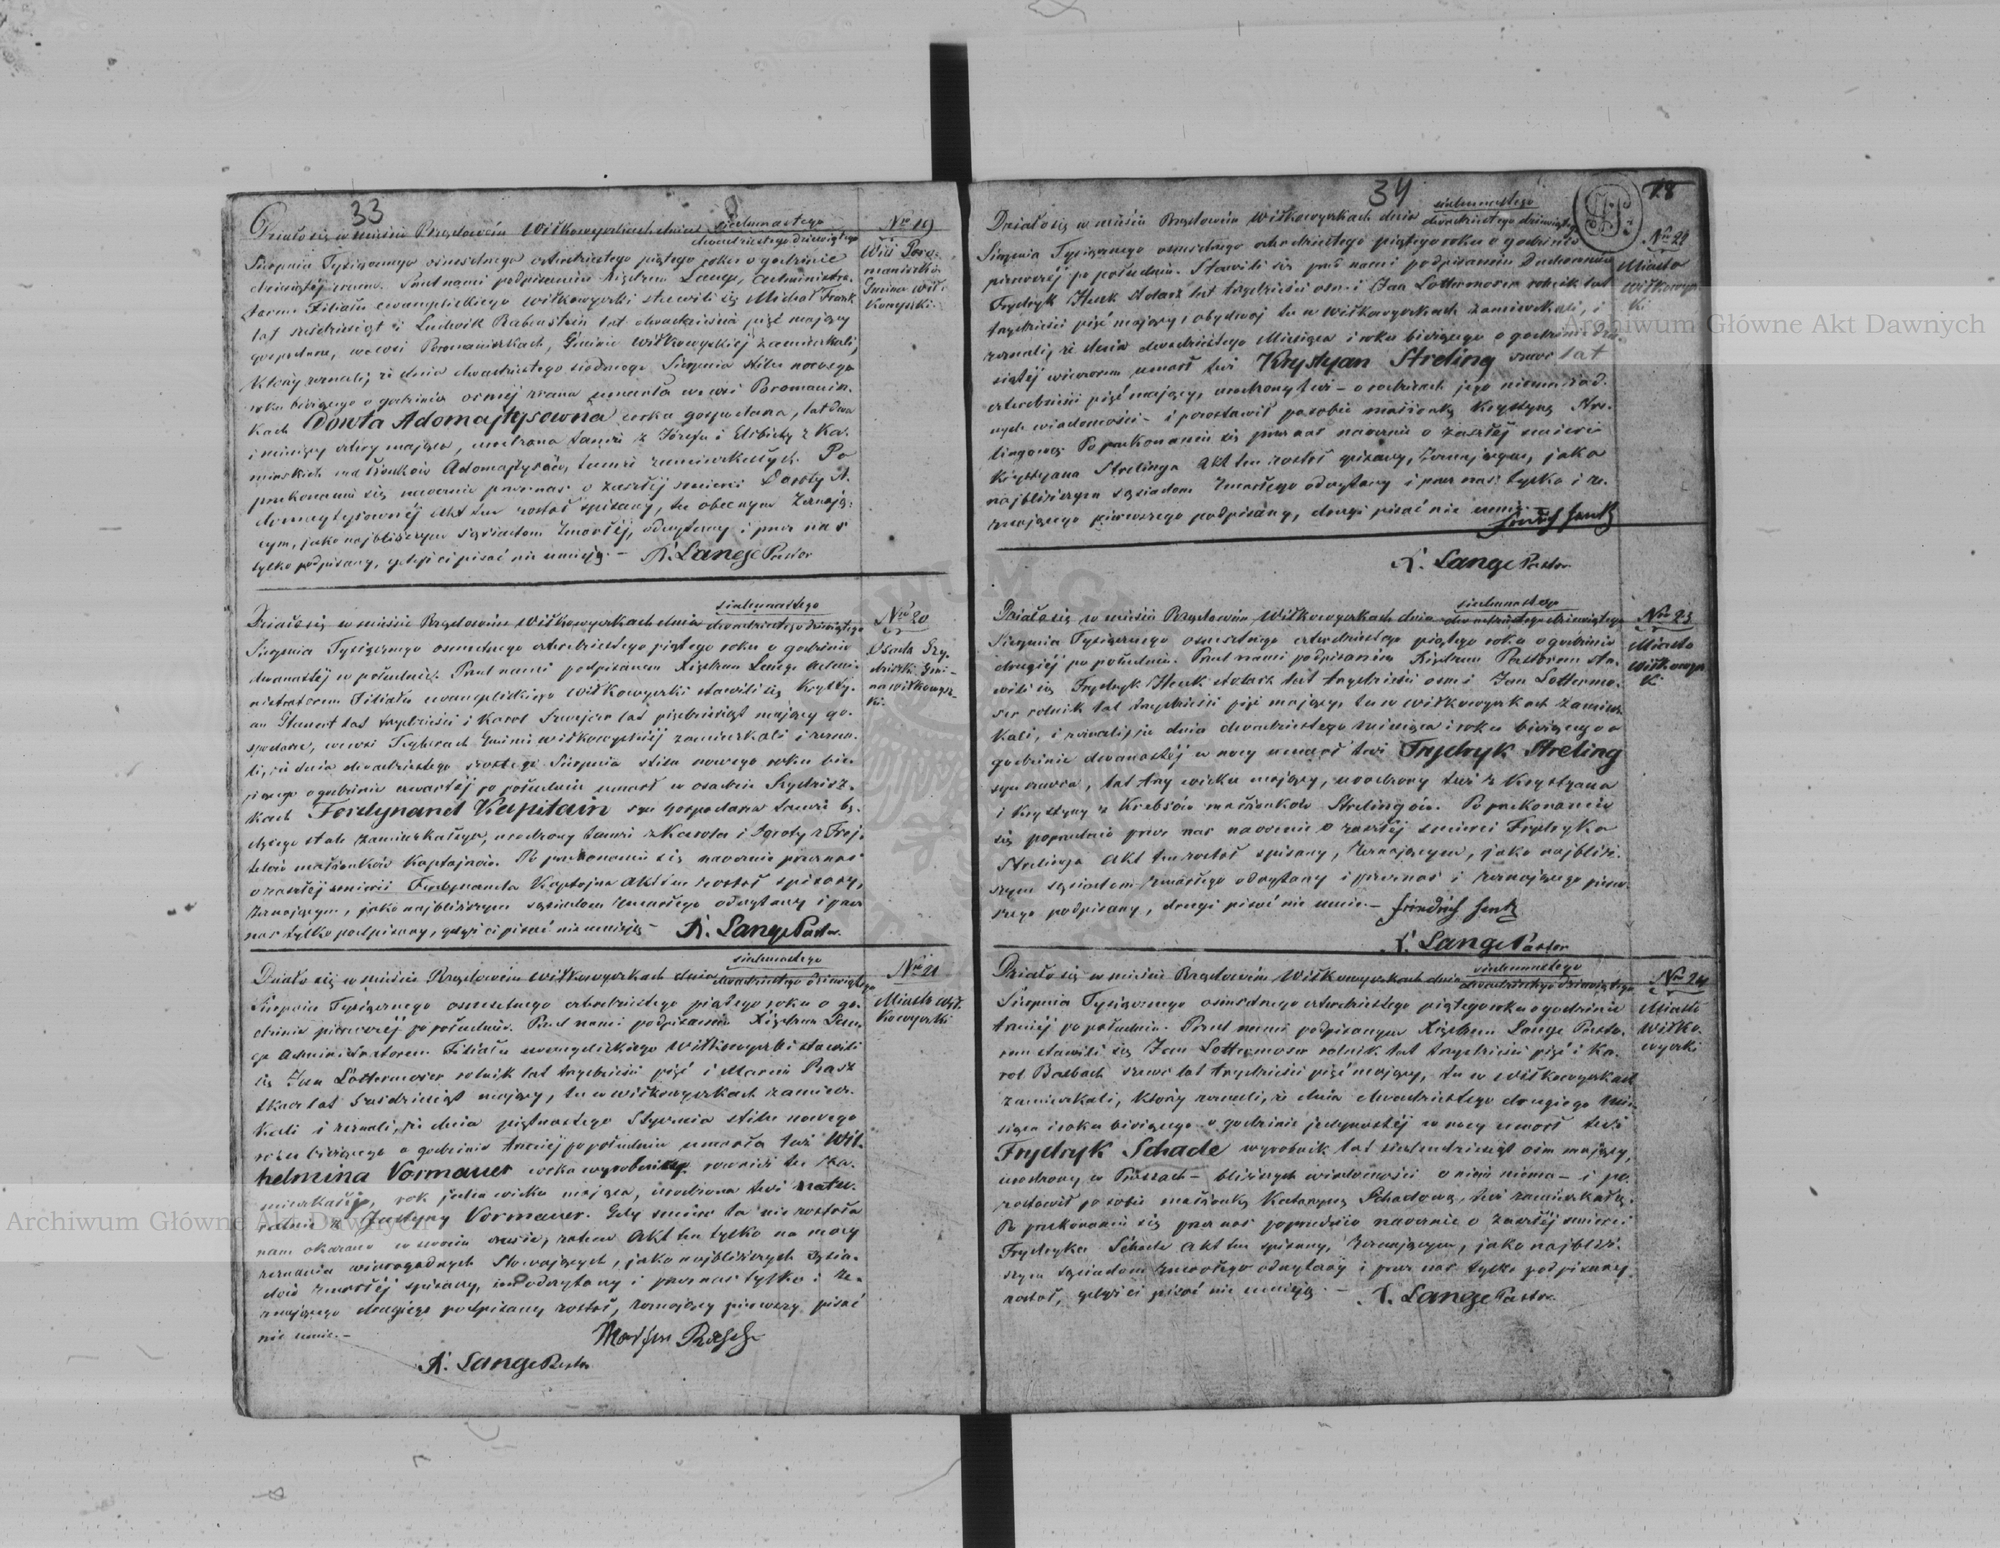 33
Nro 19
Wieś Poro-
maniszki
Gmina Wił-
kowyszki
Działo się w mieście Rządowém Wiłkowyszkach dnia siedemnastego
dwudziestego dziewiątego
Sierpnia Tysiącznego osiemsetnego czterdziestego piątego roku o godzinie
dziewiątéj zrana. Przed nami podpisanym Księdzem Lange, Administra-
torem Filiału ewangelickiego wiłkowyszki stawili się Michał Frank
lat sześdziesiąt i Ludwik Rabenstein lat dwadzieścia pięć mający
gospodarze, we wsi Poromaniszkach, Gminie Wiłkowyskiéj zamieszkali,
Który zeznali, iż dnia dwudziestego siódmego Sierpnia stilu nowego
roku bieżącego o godzinie ósméj zrana umarła we wsi Poromanisz-
kach Dorota Adomajtysowna córka gospodarza, lat dwa
i miesięcy cztery mająca, urodzona tamże z Józefa i Elżbiety z Ka-
minskich małżonków Adomajtysów, tamże zamieszkałych. Po
przekonaniu się naocznie przez nas o zaszłéj śmierci Doroty A-
domaytysownéj Akt ten został spisany, tu obecnym Zeznają-
cym, jako najbliższym sąsiadom Zmarłéj, odczytany i przez nas
tylko podpisany, gdyż ci pisać nie umieją. — K. Lange Pastor
Nro 20
Osada Szy-
dziszki Gmi-
na wiłkowysz-
ki.
Działo się w mieście Rządowém Wiłkowyszkach dnia siedemnastego
dwudziestego dziewiątego
Sierpnia Tysiącznego osiemsetnego czterdziestego piątego roku o godzinie
dwunastéj w południe. Przed nami podpisanem Księdzem Lange Admini-
nistratorem Filiału ewangelickiego wiłkowyszki stawili się Kryszty-
an lat trzydzieści i Karol Szwejcer lat pięćdziesiąt mający go-
spodarze, we wsi Gminie wiłkowyskiéj zamieszkali i zezna-
li, iż dnia dwudziestego szóstego Sierpnia stilu nowego roku bie-
żącego o godzinie czwartéj po południu umarł w osadzie Szydzisz-
kach Ferdynand Kapitain syn gospodarza tamże bę-
dącego stale zamieszkałego, urodzony tamże z Karola i Doroty z
małżonków Kapitajnów. Po przekonaniu się naocznie przez nas
o zaszłéj śmierci Ferdynanda Kapitajna Akt ten został spisany,
Zeznającym, jako najbliższym sąsiadom Zmarłego odczytany i przez
nas tylko podpisany, gdyż ci pisać nie umieją — K. Lange Pastor.
Nro 21
Miasto Wił-
kowyszki
Działo się w mieście Rządowém Wiłkowyszkach dnia siedemnastego
dwudziestego dziewiątego
Sierpnia Tysiącznego osiemsetnego czterdziestego piątego roku o go-
dzinie pierwszéj po południu. Przed nami podpisanem Księdzem Lan-
ge Administratorem Filiału ewangelickiego Wiłkowyszki stawili
się Jan Lottermoser rolnik lat trzydzieści pięć i Marcin Rasz
tkacz lat sześdziesiąt mający, tu w wiłkowyszkach zamiesz-
kali i zeznali, iż dnia piętnastego Stycznia stilu nowego
roku bieżącego o godzinie trzeciéj po południu umarła tuż Wil-
helmina Vormauer córka wyrobnicy również tu za-
mieszkałéj, rok jeden wieku mająca, urodzona tuż z
Justyny Vormauer. Gdy śmierć ta nie została
nam okazana w swoim czasie, zatem Akt ten tylko na mocy
zeznania wiarogodnych Stawających, jako najbliższych sąsia-
dów zmarłéj spisany, im odczytany i przez nas tylko i ze-
znającego drugiego podpisany został, zeznający pierwszy pisać
nie umie. —
Martin Rasch
K. Lange Pastor
34
78
Nro 22
Miasto
wiłkowysz-
ki
Działo się w mieście Rządowém Wiłkowyszkach dnia siedemnastego
dwudziestego dziewiątego
Sierpnia Tysiącznego osiemsetnego czterdziestego piątego roku o godzinie
pierwszéj po południu. Stawili się przed nami podpisanem Duchownem
Frydryk Henk stolarz lat trzydzieści ośm i Jan Lottermoser rolnik lat
trzydzieści pięć mający, obydwaj tu w wiłkowyszkach zamieszkali, i
zeznali, iż dnia dwudziestego Miesiąca i roku bieżącego o godzinie dzie-
siątéj wieczorem umarł tuż Krystyan Streling szewc lat
czterdzieści pięć mający, urodzony tuż — o rodzicach jego niema żad-
nych wiadomości — i pozostawił po sobie małżonkę Krystynę Stre-
lingową. Po przekonaniu się przez nas naocznie o zaszłéj śmierci
Krystyana Strelinga Akt ten został spisany, Zeznającym, jako
najbliższym sąsiadom Zmarłego odczytany i przez nas tylko i ze-
znającego pierwszego podpisany, drugi pisać nie umie. —
Friedrich Henk
K. Lange Pastor
Nro 23
Miasto
wiłkowysz-
ki
Działo się w mieście Rządowém Wiłkowyszkach dnia siedemnastego
dwudziestego dziewiątego
Sierpnia Tysiącznego osiemsetnego czterdziestego piątego roku o godzinie
drugiéj po południu. Przed nami podpisaném Księdzem Pastorem sta-
wili się Frydryk Henk stolarz lat trzydzieści ośm i Jan Lottermo-
ser rolnik lat trzydzieści pięć mający, tu w wiłkowyszkach zamiesz-
kali, i zeznali, iż dnia dwudziestego miesiąca i roku bieżącego o
godzinie dwunastéj w nocy umarł tuż Frydryk Streling
syn szewca, lat trzy wieku mający, urodzony tuż z Krystyana
i Krystyny z Krebsów małżonków Strelingów. Po przekonaniu
się poprzednio przez nas naocznie o zaszłéj śmierci Frydryka
Strelinga Akt ten został spisany, Zeznającym, jako najbliż-
szym sąsiadom Zmarłego odczytany i przez nas i zeznającego pierw-
szego podpisany, drugi pisać nie umie. — Friedrich Henk
K. Lange Pastor
Nro 24
Miasto
Wiłko-
wyszki
Działo się w mieście Rządowém Wiłkowyszkach dnia siedemnastego
dwudziestego dziewiątego
Sierpnia Tysiącznego osiemsetnego czterdziestego piątego roku o godzinie
trzeciéj po południu. Przed nami podpisanym Księdzem Lange Pasto-
rem stawili się Jan Lottermoser rolnik lat trzydzieści pięć i Ka-
rol Balbach szewc lat trzydzieści pięć mający, tu w wiłkowyszkach
zamieszkali, który zeznali, iż dnia dwudziestego drugiego mie-
siąca i roku bieżącego o godzinie jedynastéj w nocy umarł tuż
Frydryk Schade wyrobnik lat siedemdziesiąt ośm mający,
urodzony w Prusach — bliższych wiadomości o nim niema — i po-
zostawił po sobie małżonkę Katarzynę Schadową, tuż zamieszkałą.
Po przekonaniu się przez nas poprzednio naocznie o zaszłéj śmierci
Frydryka Schade Akt ten spisany, Zeznającym, jako najbliż-
szym sąsiadom Zmarłego odczytany i przez nas tylko podpisany
został, gdyż ci pisać nie umieją. — K. Lange Pastor.
Archiwum Główne Akt Dawnych
Archiwum Główne Akt Dawnych